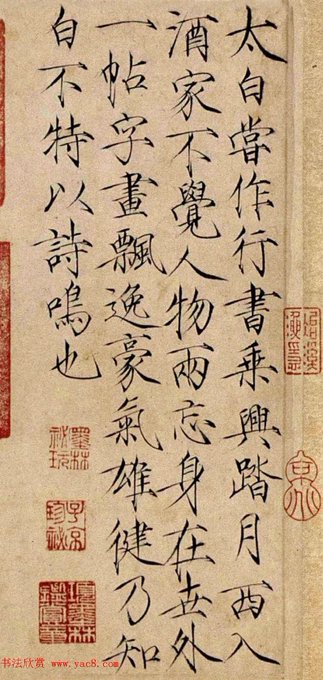 太白嘗作行書乘興踏月西入
酒家不覺人物兩忘身在世外
一帖字畫飄逸豪氣雄健乃知
白不特以詩鳴也
墨林
祕玩
項墨林
鑑賞章
书法欣赏 www.yac8.com